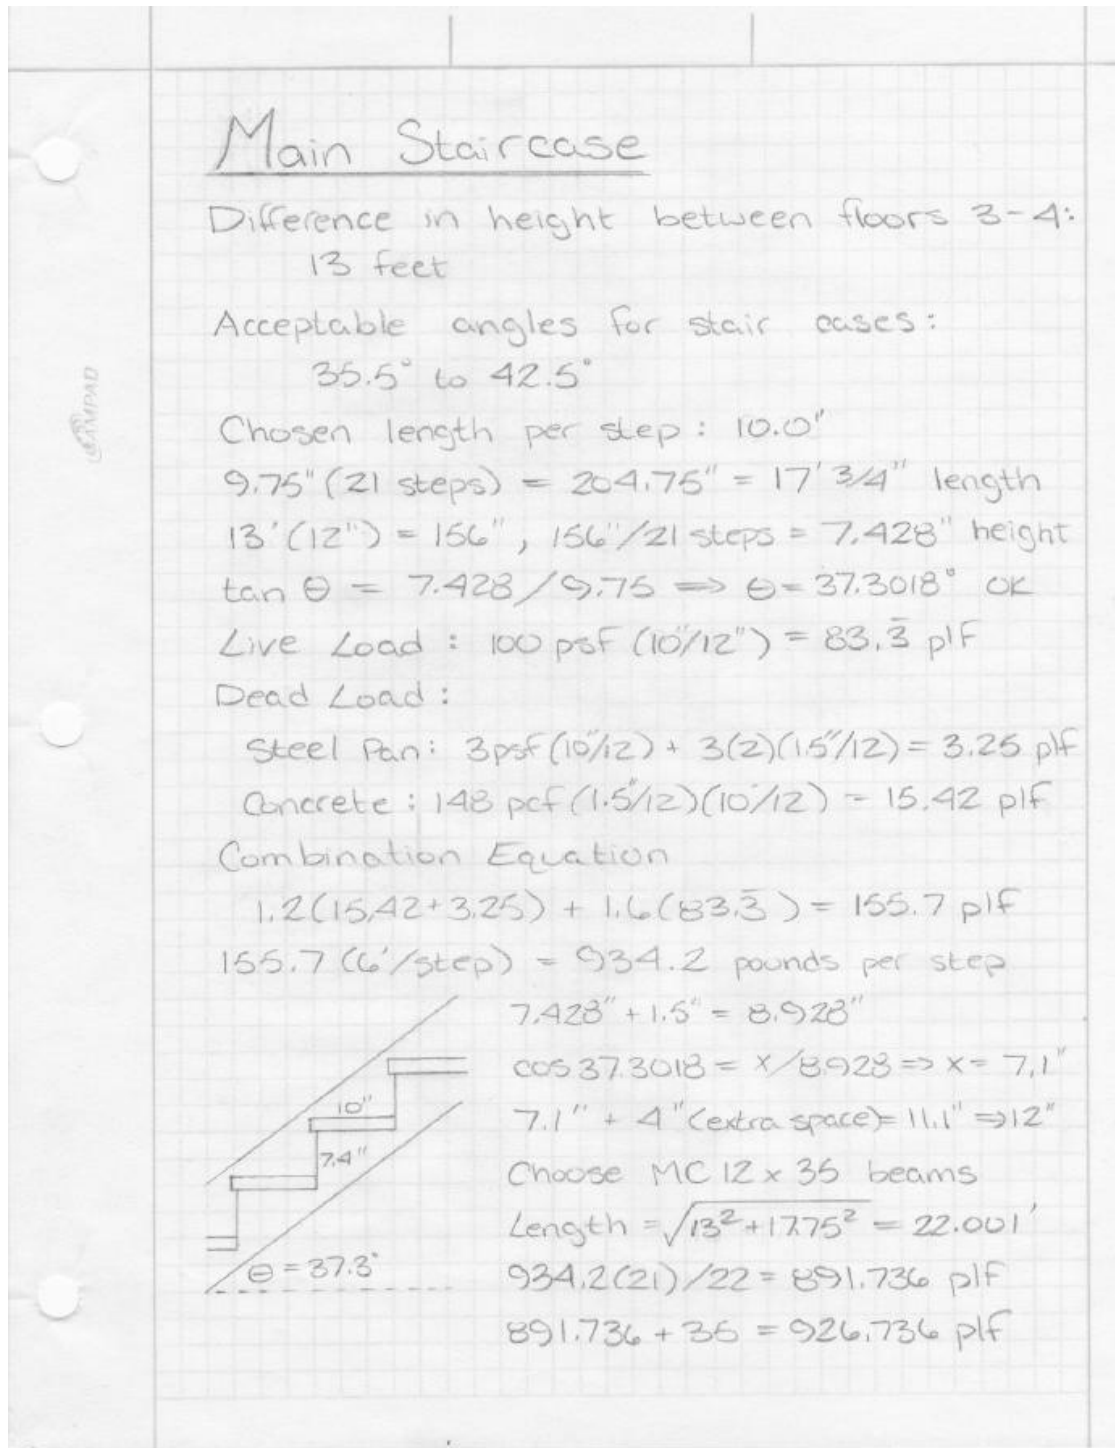 Main Staircase
Difference in height between floors 3-4:
13 feet
Acceptable angles for stair cases:
35.5° to 42.5°
Chosen length per step: 10.0"
9.75" (21 steps) = 204.75" = 17' 3/4" length
13' (12") = 156", 156"/21 steps = 7.428" height
tan θ = 7.428/9.75 => θ = 37.3018° OK
Live Load: 100 psf (10"/12") = 83.3̄ plf
Dead Load:
Steel Pan: 3psf (10"/12) + 3(2)(1.5"/12) = 3.25 plf
Concrete: 148 pcf (1.5"/12)(10"/12) = 15.42 plf
Combination Equation
1.2(15.42+3.25) + 1.6(83.3̄) = 155.7 plf
155.7 (6'/step) = 934.2 pounds per step
7.428" + 1.5" = 8.928"
cos 37.3018 = x/8.928 => x = 7.1"
7.1" + 4" (extra space) = 11.1" => 12"
Choose MC 12 x 35 beams
Length = √13²+17.75² = 22.001'
934.2(21)/22 = 891.736 plf
891.736 + 35 = 926.736 plf
10"
7.4"
θ = 37.3°
AMPAD